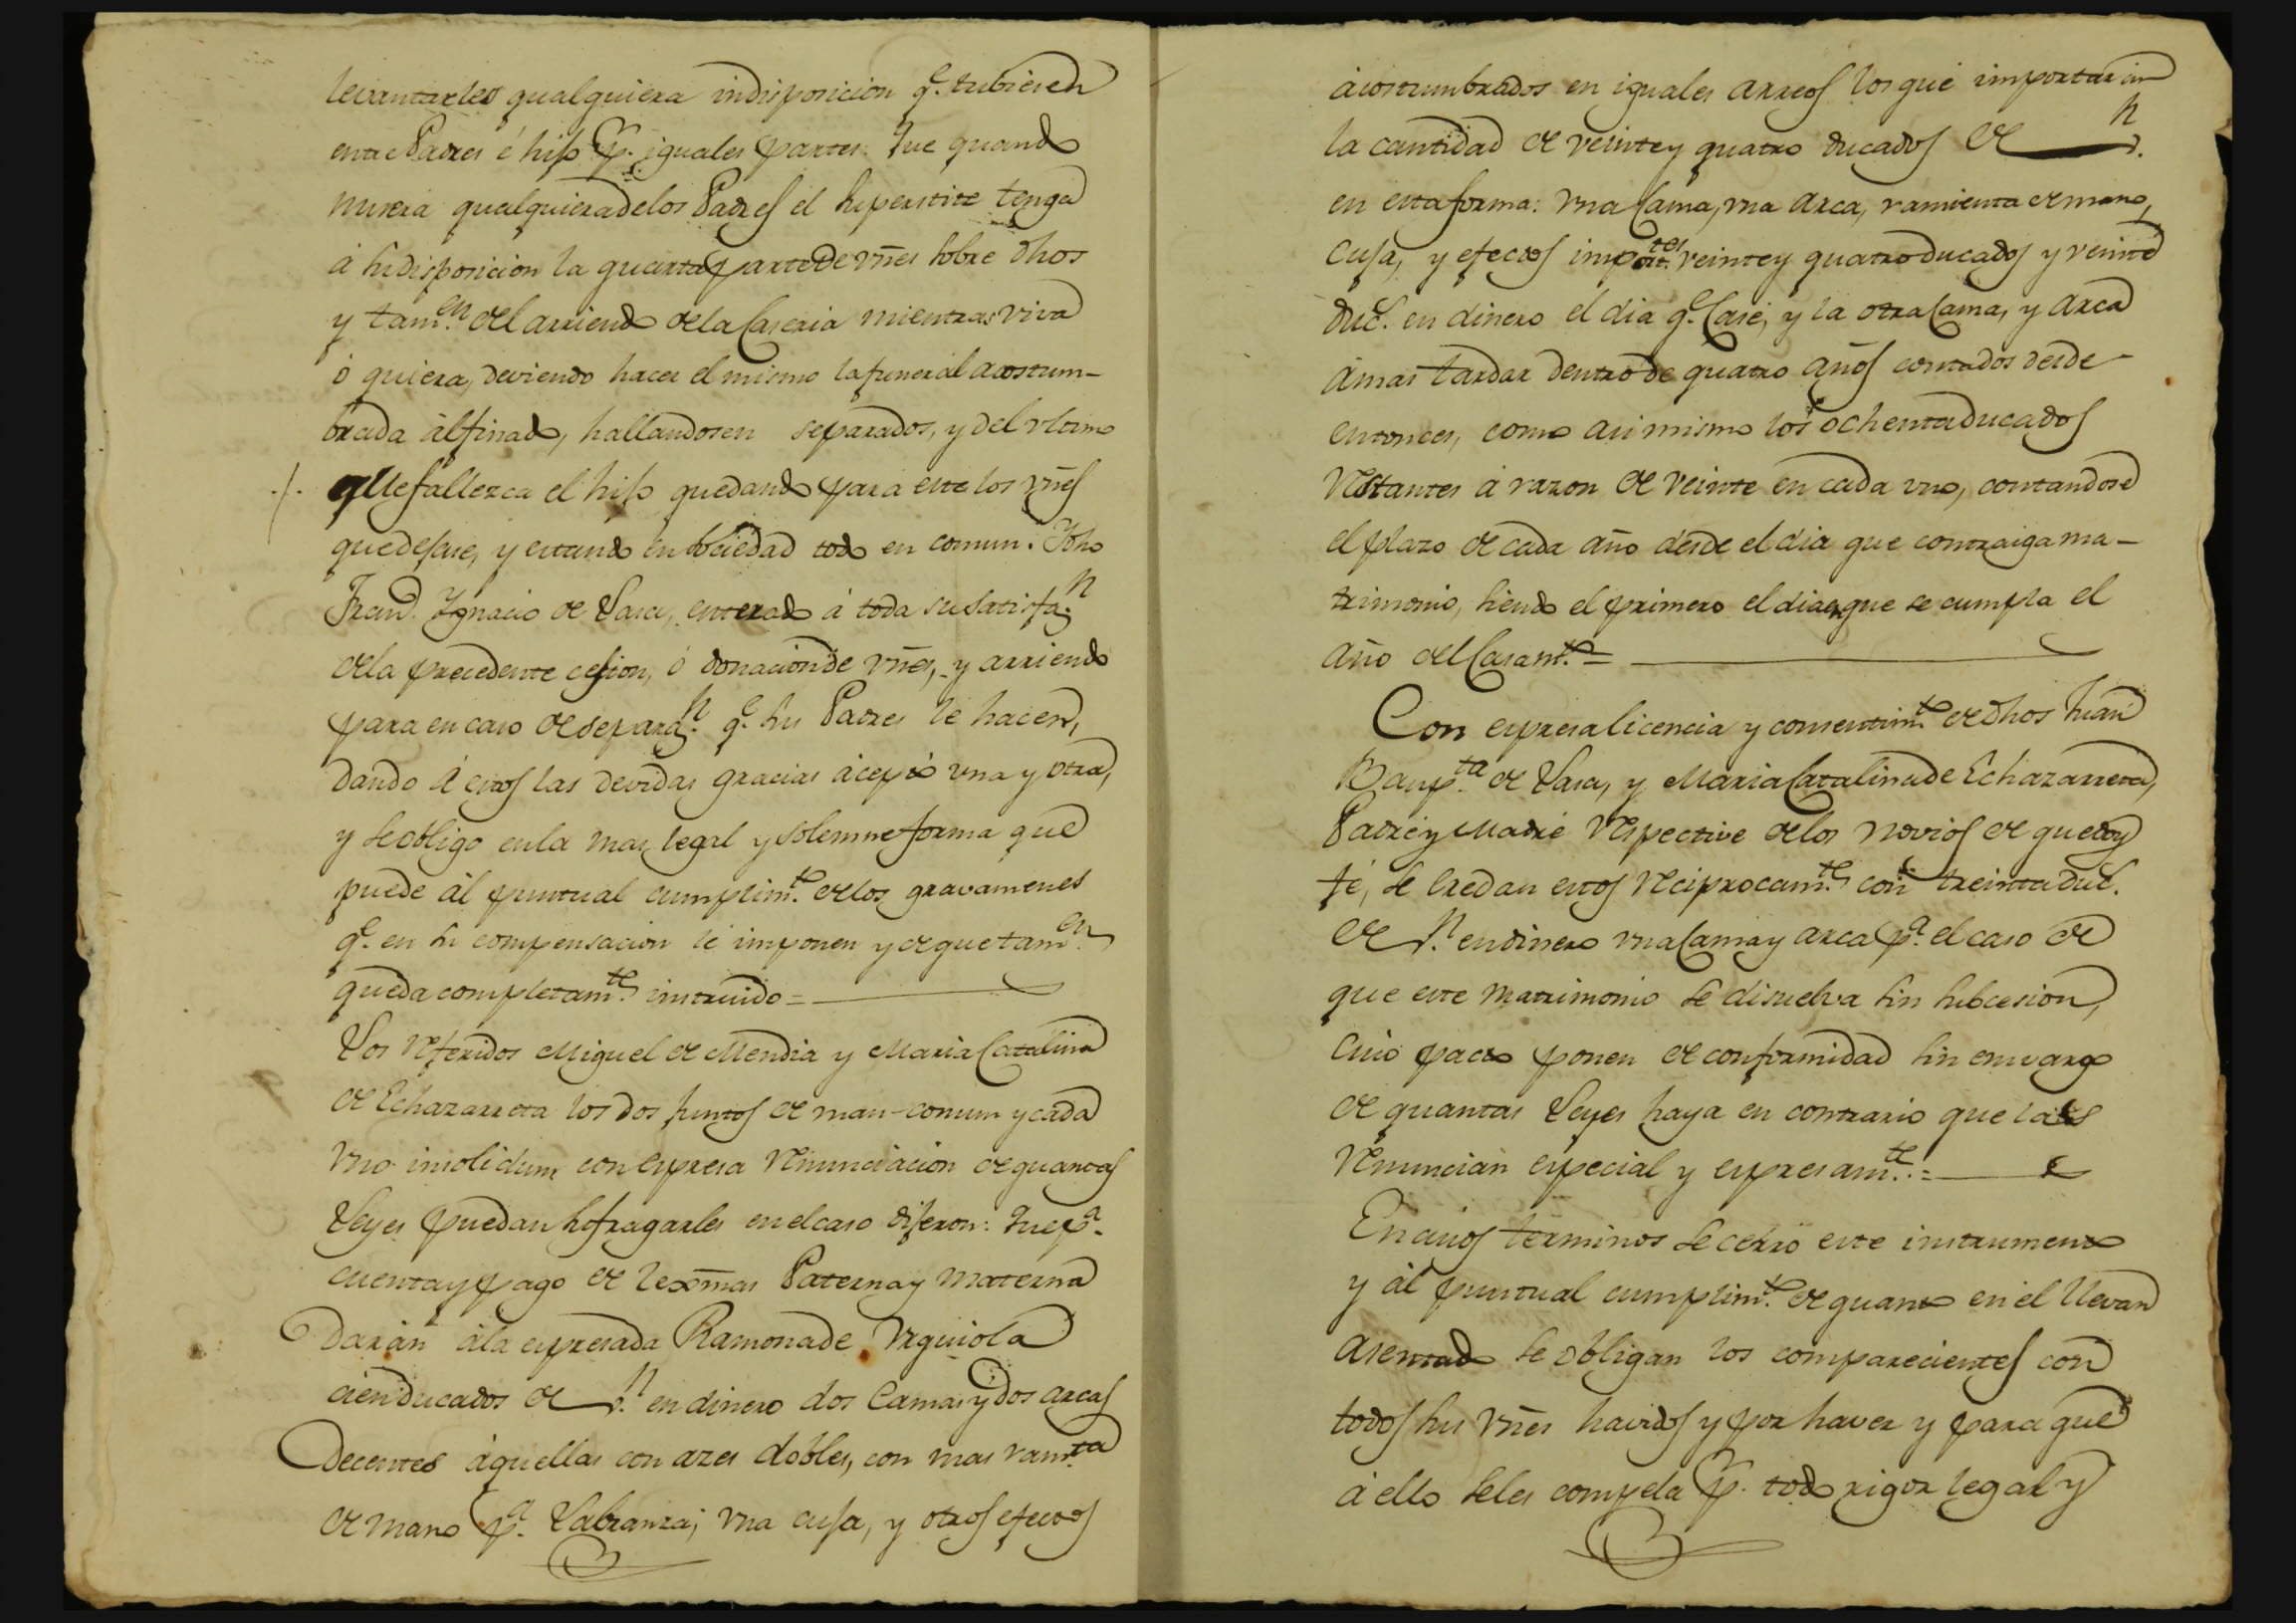 levantarles qualquiera indisposicion q.e tubieren
entre Padres é hijo p.r iguales partes: Que quando
muera qualquiera de los Padres el superstite tenga
á su disposicion la quarta parte de vñes sobre dhos
y tam.en del arriendo de la Caseria mientras viva
ó quiera, deviendo hacer el mismo la funeral acostum-
brada al finado, hallandosen separados, y del ultimo
que fallezca el hijo quedando para este los vñes
que dejare, y estando en sociedad todo en comun. Y dho
Fran.co Ygnacio de Lasa, enterado á toda su satisfaz.n
de la precedente cesion, ó donacion de vñes, y arriendo
para en caso de separaz.n q.e sus Padres le hacen,
dando á estos las devidas gracias acepto una y otra,
y se obligo en la mas legal y solemne forma que
puede al puntual cumplim.to de los gravamenes
q.e en su compensacion le imponen y de que tam.en
queda completam.te instruido =
Los referidos Miguel de Mendia y Maria Catalina
de Echazarreta los dos juntos de man-comun y cada
uno insolidum con expresa renunciacion de quantas
Leyes puedan sufragarles en el caso dijeron: Que p.a
cuenta y pago de lexmas Paterna y Materna
daràn à la expresada Ramona de Urquiola
cien ducados de v.n en dinero dos Camas y dos arcas
decentes aquellas con azes dobles, con mas ramta
de mano p.a Labranza; una cuja, y otros efectos
acostumbrados en iguales arreos los que importaràn
la cantidad de veinte y quatro ducados de v.n
en esta forma: una Cama, una arca, ramienta de mano,
Cuja, y efectos imp.tes veinte y quatro ducados y veinte
duc.s en dinero el dia q.e Case, y la otra Cama, y arca
à mas tardar dentro de quatro años contados desde
entonces, como asi mismo los ochenta ducados
restantes á razon de veinte en cada uno, contandose
el plazo de cada año desde el dia que contraiga ma-
trimonio, siendo el primero el dia que se cumpla el
año del Casam.to =
Con expresa licencia y consentim.to de dhos Juan
Baup.ta de Lasa, y Maria Catalina de Echazarreta,
Padre y Madre respective de los novios de que doy
fé, se eredan estos reciprocam.te con treinta duc.s
de v.n en dinero una Cama y arca p.a el caso de
que este matrimonio se disuelva sin subcesion,
cuio pacto ponen de conformidad sin emvargo
de quantas Leyes haya en contrario que las
renuncian especial y expresam.te =
En cuios terminos se cerró este instrumento
y al puntual cumplim.to de quanto en el llevan
asentado se obligan los comparecientes con
todos sus vñes havidos y por haver y para que
á ello se les compela p.r todo rigor legal y